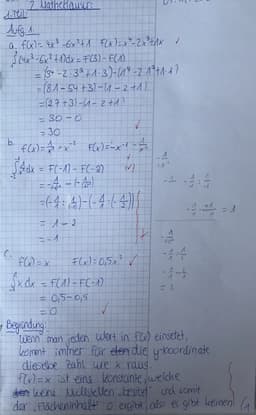 2. Mathe Klausur
1. Teil
Aufg. 1
a. f(x)= 4x³-6x²+1 F(x)=x⁴-2x³+1x
∫(4x³-6x²+1)dx = F(3) - F(1)
= (3⁴-2·3³+1·3)-(1⁴-2·1³+1·1)
= (81-54+3)-(1-2+1)
= (27+3)-(1-2+1)
= 30-0
= 30
b. f(x)= 1/x² = x⁻² F(x)= -x⁻¹ = -1/x
dx = F(-1) - F(-2)
= 1-2
= -1
c.
f(x)=x F(x)=0,5x²
∫x dx = F(1)-F(-1)
= 0,5-0,5
= 0
Begründung:
Wenn man jeden Wert in f(x) einsetzt,
kommt immer für die y-koordinate
dieselbe Zahl wie x raus.
f(x)=x ist eine konstante, welche
keine Nullstellen besitzt und somit
der Flächeninhalt 0 ergibt, also es gibt keinen